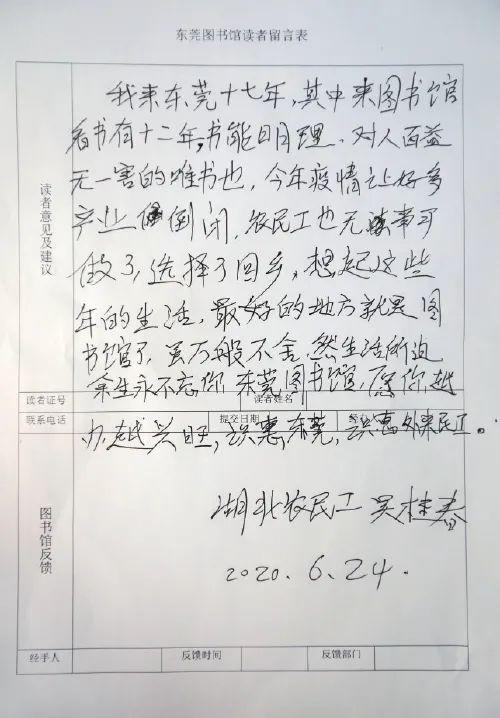 东莞图书馆读者留言表
读者意见及建议
我来东莞十七年，其中来图书馆
看书有十二年，书能明理、对人百益
无一害的唯书也，今年疫情让好多
产业倒闭，农民工也无事可
做了，选择了回乡，想起这些
年的生活，最好的地方就是图
书馆了，虽万般不舍，然生活所迫
余生永不忘你，东莞图书馆，愿你越
办越兴旺，识惠东莞，识惠外来民工。
读者证号
读者姓名
联系电话
提交日期
图书馆反馈
湖北农民工 吴桂春
2020.6.24.
经手人
反馈时间
反馈部门